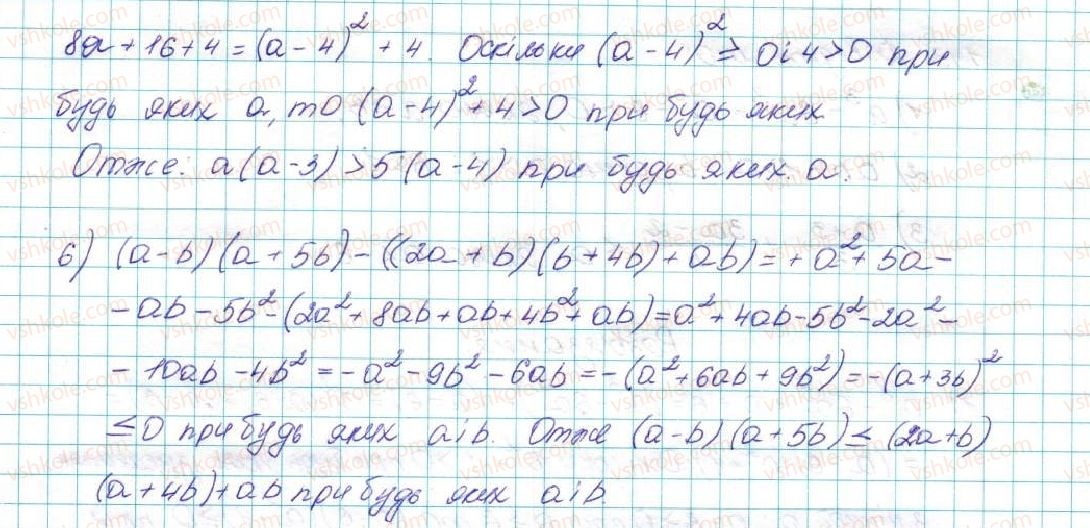 8a + 16 + 4 = (a - 4)² + 4. Оскільки (a - 4)² ≥ 0 і 4 > 0 при
будь яких a, то (a - 4)² + 4 > 0 при будь яких
Отже: a(a - 3) > 5(a - 4) при будь яких a.
6) (a - b)(a + 5b) - ((2a + b)(b + 4b) + ab) = + a² + 5a -
- ab - 5b² - (2a² + 8ab + ab + 4b² + ab) = a² + 4ab - 5b² - 2a² -
- 10ab - 4b² = - a² - 9b² - 6ab = - (a² + 6ab + 9b²) = - (a + 3b)²
≤ 0 при будь яких a і b. Отже (a - b)(a + 5b) ≤ (2a + b)
(a + 4b) + ab при будь яких a і b.